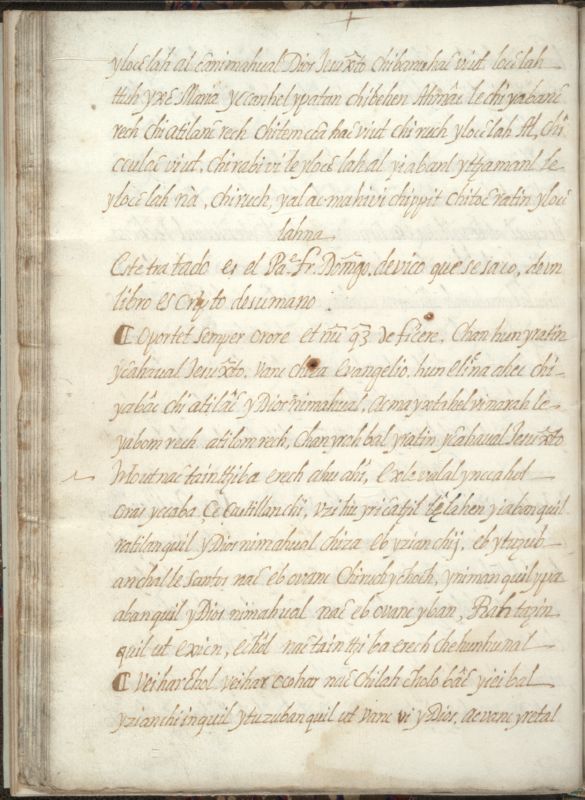 yloc̄ lah al c̄animahual Dios Jesuxp̄to chibanu hac̄ viut loc̄ lah
ttuh yxc̄ Maria yc conhel ypatan chibehen le chi yabanc̄
rech chi atilanc̄ rech chitem hac̄ viut chi ruch yloc̄ lah Al, chi
cculac viut. Chirabi vi le yloc̄ lah al yiabanl yttzamanl le
yloc̄ lah na, chiruch, yal ac mahivi chippit chitoc̄ ratin yloc̄
lahna
Este tratado es el Pa.e fr. Domīgo. devico que se saco, deun
libro escripto desumano
Oportet semper orore et nū deficere. Chan hun yratin
yc̄ahaual Jesuxp̄to. vanc chiza Evangelio. hun elic̄ na ahec chi-
yabac̄ chi atilac̄ y Dios nimahual. Acmayxtahel vi narah le-
yabom rech atilom rech, Chan yrch bal yratin yc̄ahaual Jesuxp̄to
nac tain ttiba erech ahu ahi, Exle vialal ynccahol
Oras yccaba Ce Castillanchi, vzi hu yri le lahen yiabanquil
ratilanquil y Dios nimahual chiza eb yzianchij, eb ytuzub
anchal le Santos nac̄ eb ovanc Chiruchychoch, ynimanquil ypa
abanquil y Dios nimahual nac̄ eb ovanc yban, Rahtazin
quil ut exicn, echd nac tain tti ba erech chehunhunal
Veihar c̄hol veihar ocohar nac̄ chilah c̄holo bac̄ yiei bal
yzianchiinquil ytuzubanquil ut vanc vi y Dios. aevanc yretal